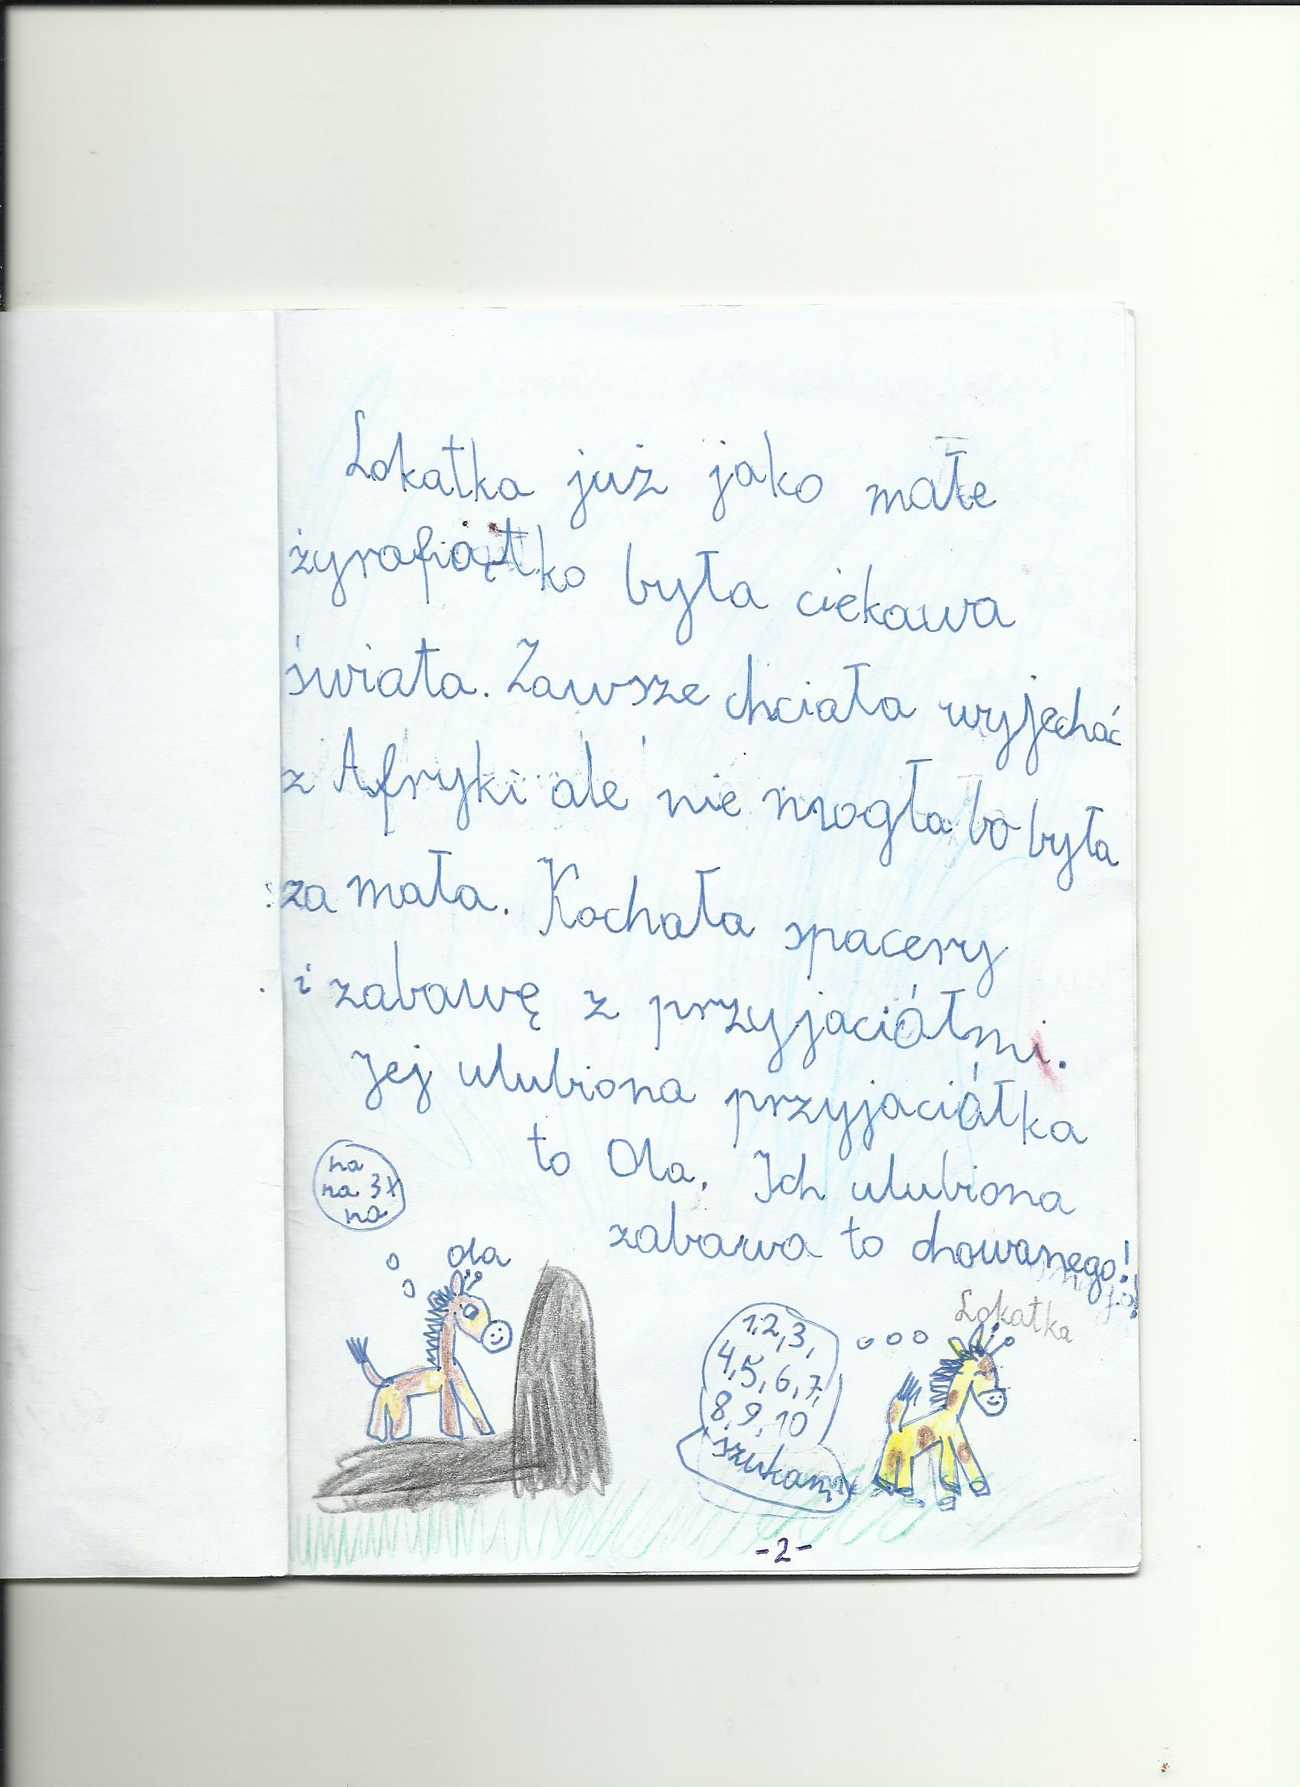 Lokatka już jako małe
żyrafiątko była ciekawa
świata. Zawsze chciała wyjechać
z Afryki ale nie mogła bo była
za mała. Kochała spacery
i zabawę z przyjaciółmi.
Jej ulubiona przyjaciółka
to Ola. Ich ulubiona
zabawa to chowanego!
na
na 3x
na
Ola
Lokatka
1,2,3,
4,5,6,7,
8,9,10
szukam
-2-